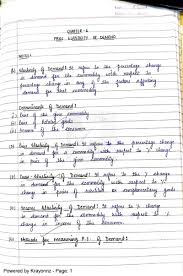 CHAPTER - 6
PRICE ELASTICITY OF DEMAND
NOTES :
Elasticity of Demand : It refers to the percentage change
in demand for the commodity with respect to
percentage change in any of the factors affecting
demand for that commodity.
Determinants of Demand :
Price of the given commodity
Price of Related goods
Income of the consumer
Elasticity of Demand : It refers to the % change
in demand for the commodity with respect to % change
in price of the given commodity.
Cross - Elasticity of Demand : It refers to the % change
in demand for the commodity with respect to %
change in price of substitute or complementary goods
Income Elasticity of Demand : It refers to the % change
in demand for the commodity with respect to % change
in income of the consumer.
Methods for measuring P.E. of Demand :
Powered by Kraymnz - Page: 1